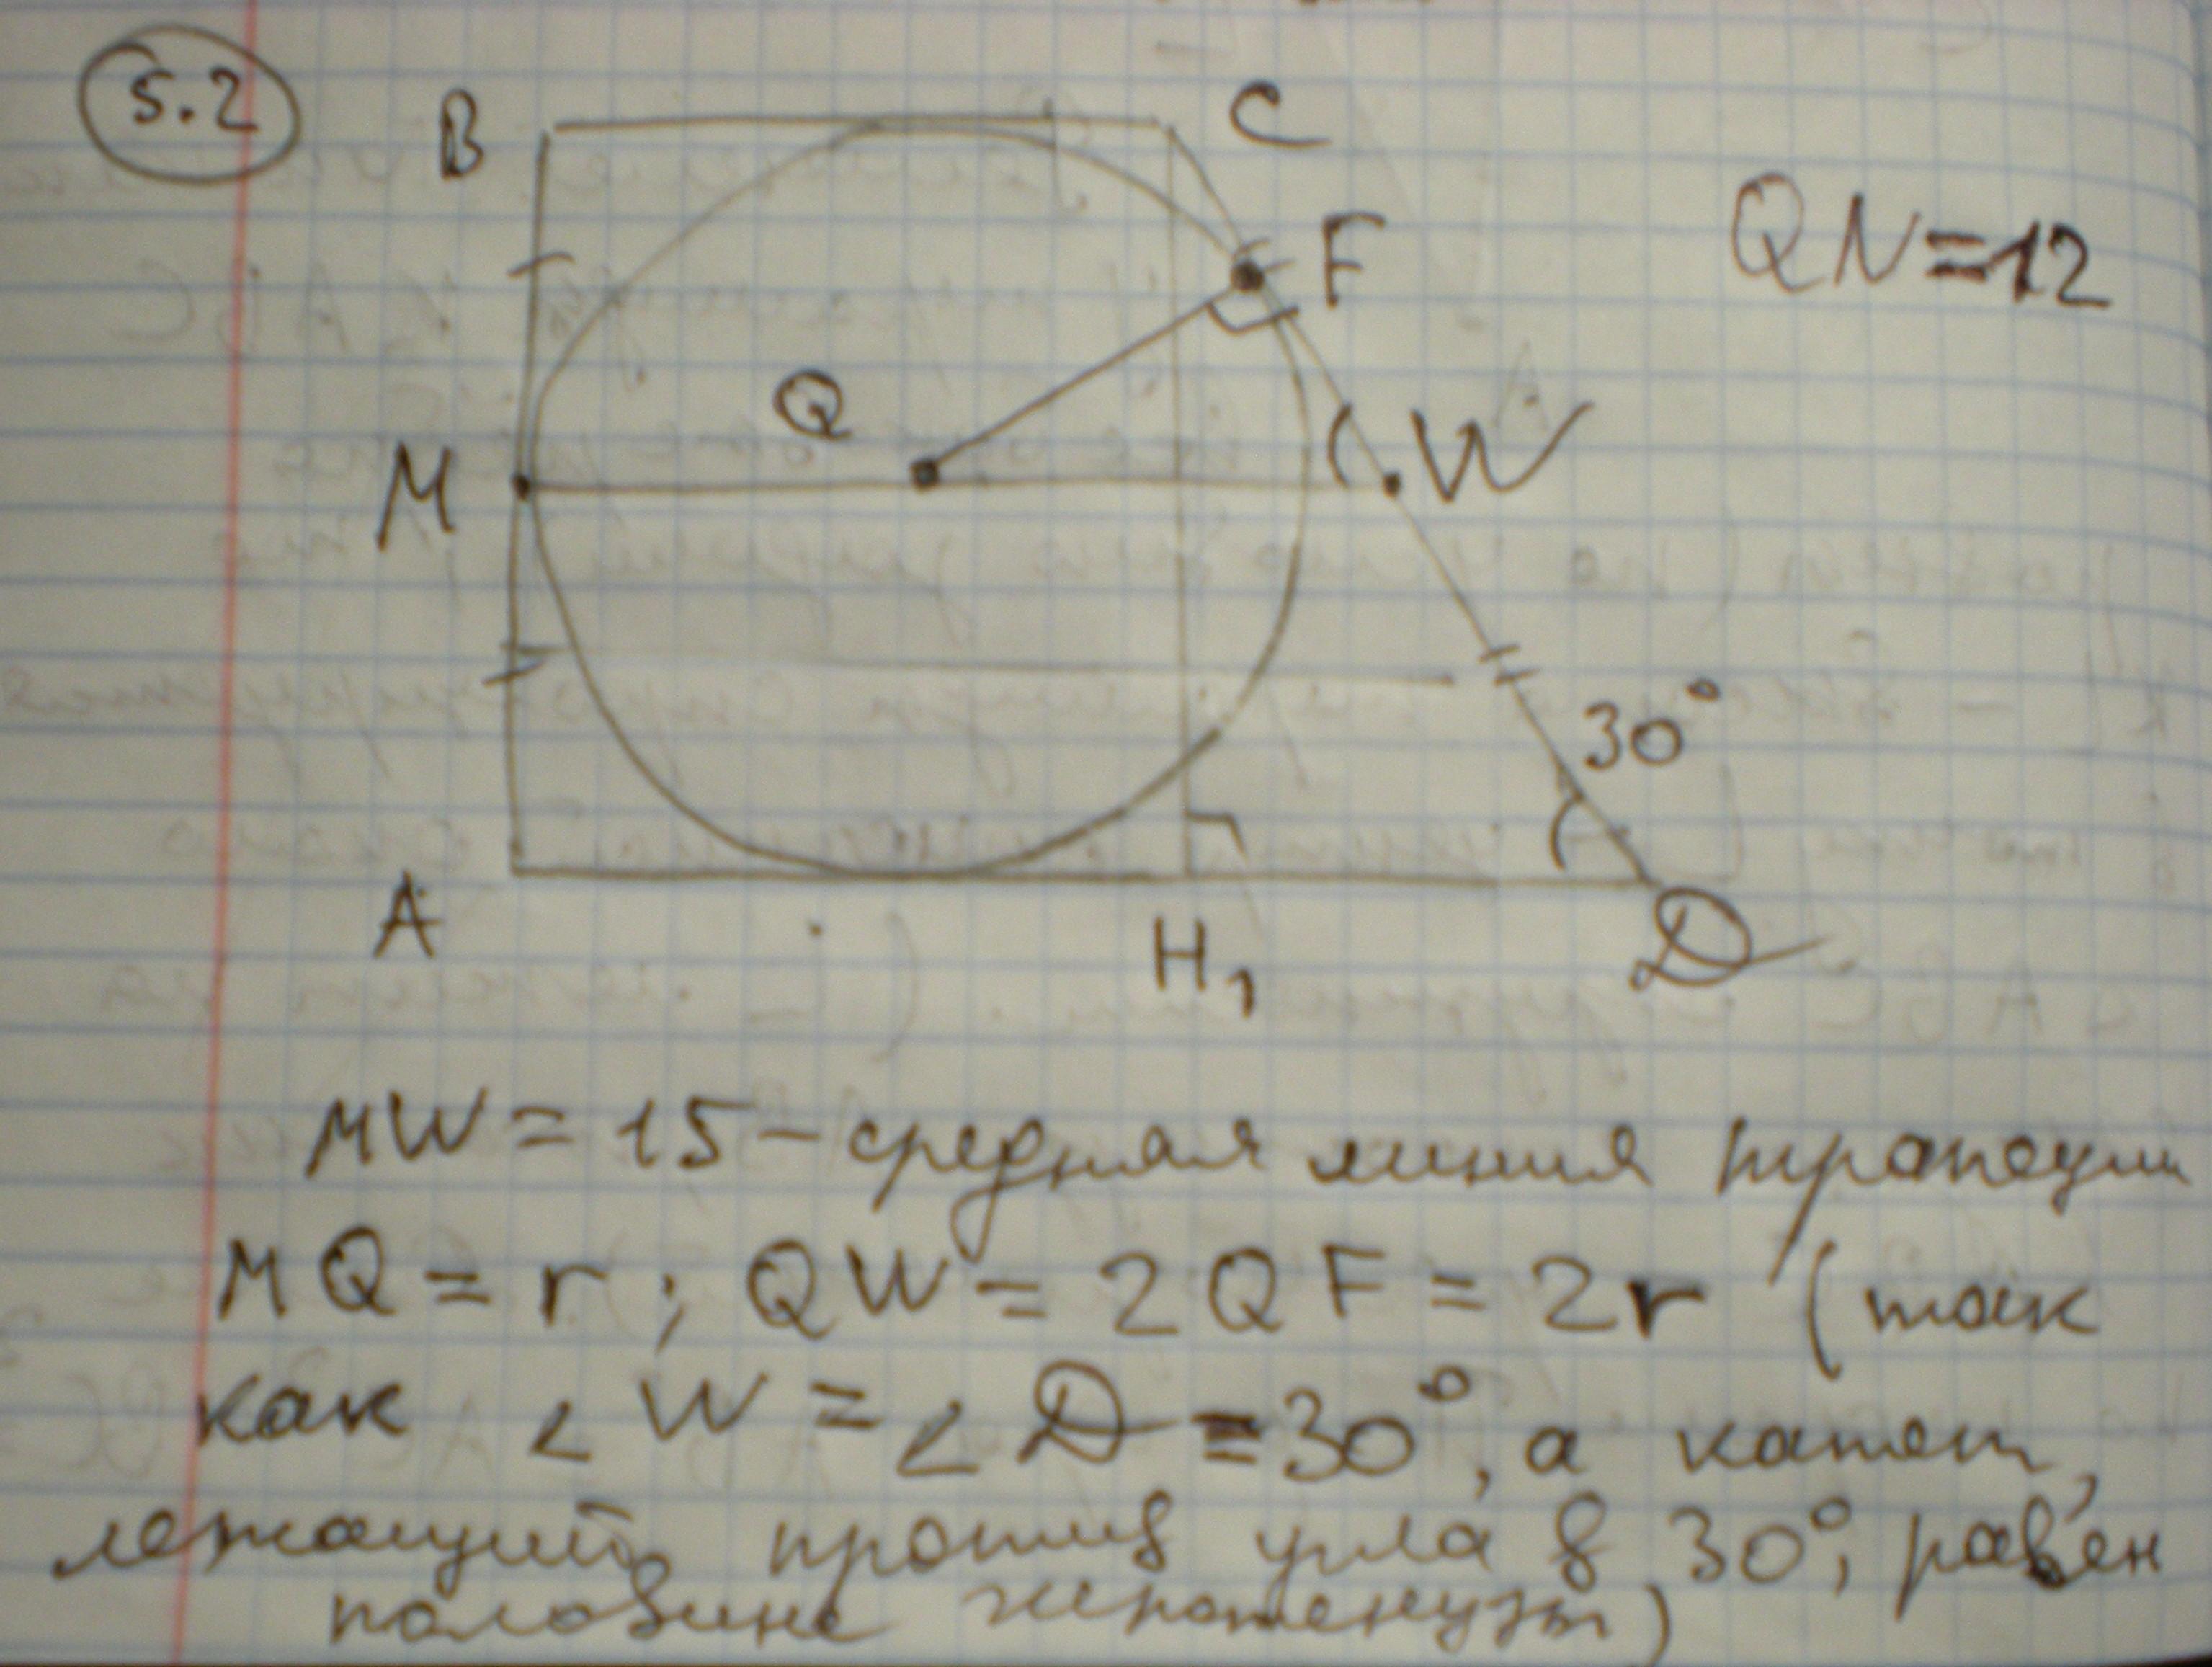 5.2
B
C
F
QN=12
Q
M
W
30°
A
H₁
D
MW = 15 - средняя линия трапеции
MQ = r ; QW = 2QF = 2r (так
как ∠W = ∠D = 30°, а катет,
лежащий против угла в 30°, равен
половине гипотенузы)